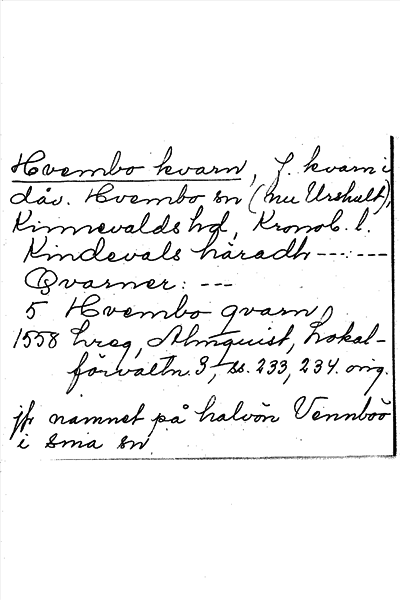 Hvembo kvarn, f. kvarn i
dåv. Hvembo sn (nu Urshult),
Kinnevalds hd, Kronob. l.
Kindevals häradh --- : ---
Qvarner: ---
5 Hvembo qvarn
1558 hreg, Almquist, Lokal-
förvaltn. 3, ss. 233, 234. orig.
jfr namnet på halvön Vennböö
i sma sn